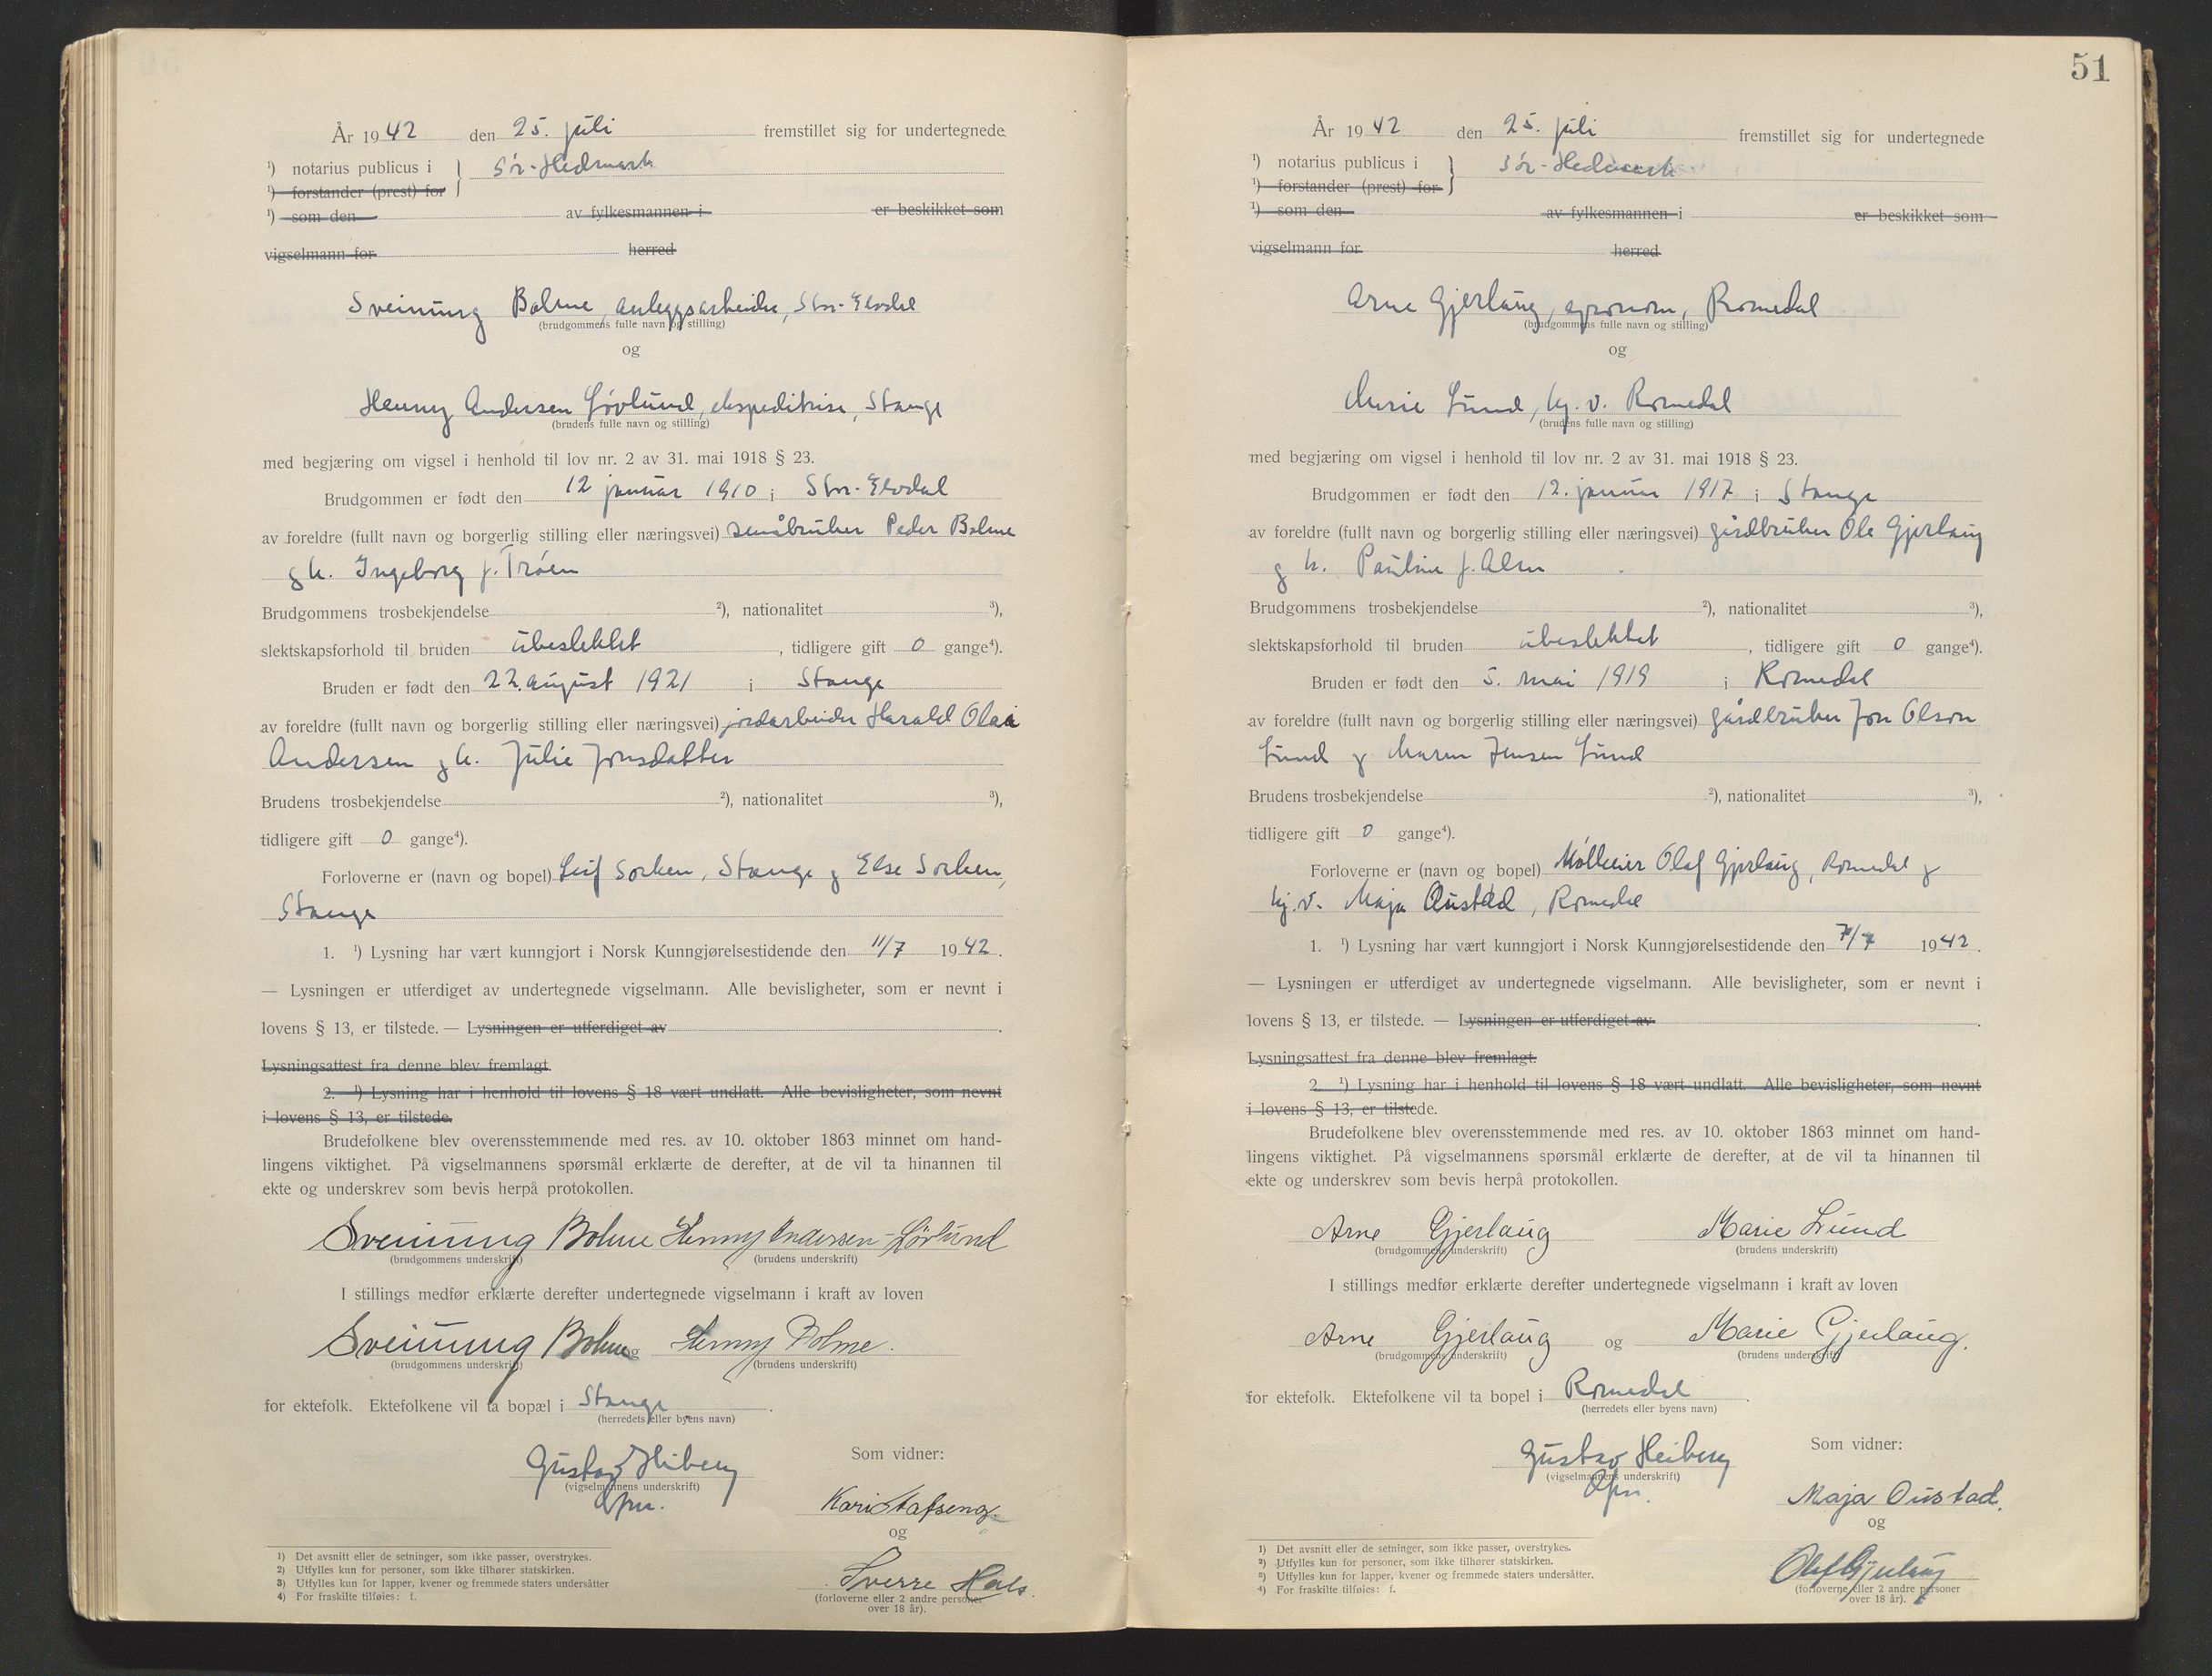 År 1942 den 25. juli fremstillet sig for undertegnede
¹) notarius publicus i } Sør-Hedmark
¹) forstander (prest) for
¹) som den av fylkesmannen i er beskikket som
vigselmann for herred
Sveinung Bolme, anleggsarbeider, Stor-Elvdal
(brudgommens fulle navn og stilling)
og
Henny Andersen Løvlund, ekspeditrise, Stange
(brudens fulle navn og stilling)
med begjæring om vigsel i henhold til lov nr. 2 av 31. mai 1918 § 23.
Brudgommen er født den 12 januar 1910 i Stor-Elvdal
av foreldre (fullt navn og borgerlig stilling eller næringsvei) småbruker Peder Bolme
og h. Ingeborg f. Trøen
Brudgommens trosbekjendelse ²), nationalitet ³),
slektskapsforhold til bruden ubeslektet, tidligere gift 0 gange⁴).
Bruden er født den 22. august 1921 i Stange
av foreldre (fullt navn og borgerlig stilling eller næringsvei) jordarbeider Harald Olai
Andersen og h. Julie Jonsdatter
Brudens trosbekjendelse ²), nationalitet ³),
tidligere gift 0 gange⁴).
Forloverne er (navn og bopel) Leif Sorken, Stange og Else Sorken,
Stange
1. ¹) Lysning har vært kunngjort i Norsk Kunngjørelsestidende den 11/7 1942.
— Lysningen er utferdiget av undertegnede vigselmann. Alle bevisligheter, som er nevnt i
lovens § 13, er tilstede. — Lysningen er utferdiget av .
Lysningsattest fra denne blev fremlagt.
2. ¹) Lysning har i henhold til lovens § 18 vært undlatt. Alle bevisligheter, som nevnt
i lovens § 13, er tilstede.
Brudefolkene blev overensstemmende med res. av 10. oktober 1863 minnet om hand-
lingens viktighet. På vigselmannens spørsmål erklærte de derefter, at de vil ta hinannen til
ekte og underskrev som bevis herpå protokollen.
Sveinung Bolme Henny Andersen-Lövlund
(brudgommens underskrift) (brudens underskrift)
I stillings medfør erklærte derefter undertegnede vigselmann i kraft av loven
Sveinung Bolme og Henny Bolme.
(brudgommens underskrift) (brudens underskrift)
for ektefolk. Ektefolkene vil ta bopæl i Stange.
(herredets eller byens navn)
Gustav Heiberg
(vigselmannens underskrift)
Som vidner:
Kari
og
Sverre Hals.
(forloverne eller 2 andre personer
over 18 år).
1) Det avsnitt eller de setninger, som ikke passer, overstrykes.
2) Utfylles kun for personer, som ikke tilhører statskirken.
3) Utfylles kun for lapper, kvener og fremmede staters undersåtter
4) For fraskilte tilføies: f.
51
År 1942 den 25. juli fremstillet sig for undertegnede
¹) notarius publicus i } Sør-Hedmark
¹) forstander (prest) for
¹) som den av fylkesmannen i er beskikket som
vigselmann for herred
Arne Gjerlaug, agronom, Romedal
(brudgommens fulle navn og stilling)
og
Marie Lund, hj. v. Romedal
(brudens fulle navn og stilling)
med begjæring om vigsel i henhold til lov nr. 2 av 31. mai 1918 § 23.
Brudgommen er født den 12. januar 1917 i Stange
av foreldre (fullt navn og borgerlig stilling eller næringsvei) gårdbruker Ole Gjerlaug
og h. Pauline f. Alm
Brudgommens trosbekjendelse ²), nationalitet ³),
slektskapsforhold til bruden ubeslektet, tidligere gift 0 gange⁴).
Bruden er født den 5. mai 1919 i Romedal
av foreldre (fullt navn og borgerlig stilling eller næringsvei) gårdbruker Jon Olson
Lund og Maren Jensen Lund
Brudens trosbekjendelse ²), nationalitet ³),
tidligere gift 0 gange⁴).
Forloverne er (navn og bopel) Olaf Gjerlaug, Romedal og
hj. v. Maja Oustad, Romedal
1. ¹) Lysning har vært kunngjort i Norsk Kunngjørelsestidende den 7/7 1942.
— Lysningen er utferdiget av undertegnede vigselmann. Alle bevisligheter, som er nevnt i
lovens § 13, er tilstede. — Lysningen er utferdiget av .
Lysningsattest fra denne blev fremlagt.
2. ¹) Lysning har i henhold til lovens § 18 vært undlatt. Alle bevisligheter, som nevnt
i lovens § 13, er tilstede.
Brudefolkene blev overensstemmende med res. av 10. oktober 1863 minnet om hand-
lingens viktighet. På vigselmannens spørsmål erklærte de derefter, at de vil ta hinannen til
ekte og underskrev som bevis herpå protokollen.
Arne Gjerlaug Marie Lund
(brudgommens underskrift) (brudens underskrift)
I stillings medfør erklærte derefter undertegnede vigselmann i kraft av loven
Arne Gjerlaug og Marie Gjerlaug.
(brudgommens underskrift) (brudens underskrift)
for ektefolk. Ektefolkene vil ta bopel i Romedal.
(herredets eller byens navn)
Gustav Heiberg
(vigselmannens underskrift)
Som vidner:
Maja Oustad.
og
Olaf Gjerlaug
(forloverne eller 2 andre personer
over 18 år).
1) Det avsnitt eller de setninger, som ikke passer, overstrykes.
2) Utfylles kun for personer, som ikke tilhører statskirken.
3) Utfylles kun for lapper, kvener og fremmede staters undersåtter.
4) For fraskilte tilføies: f.